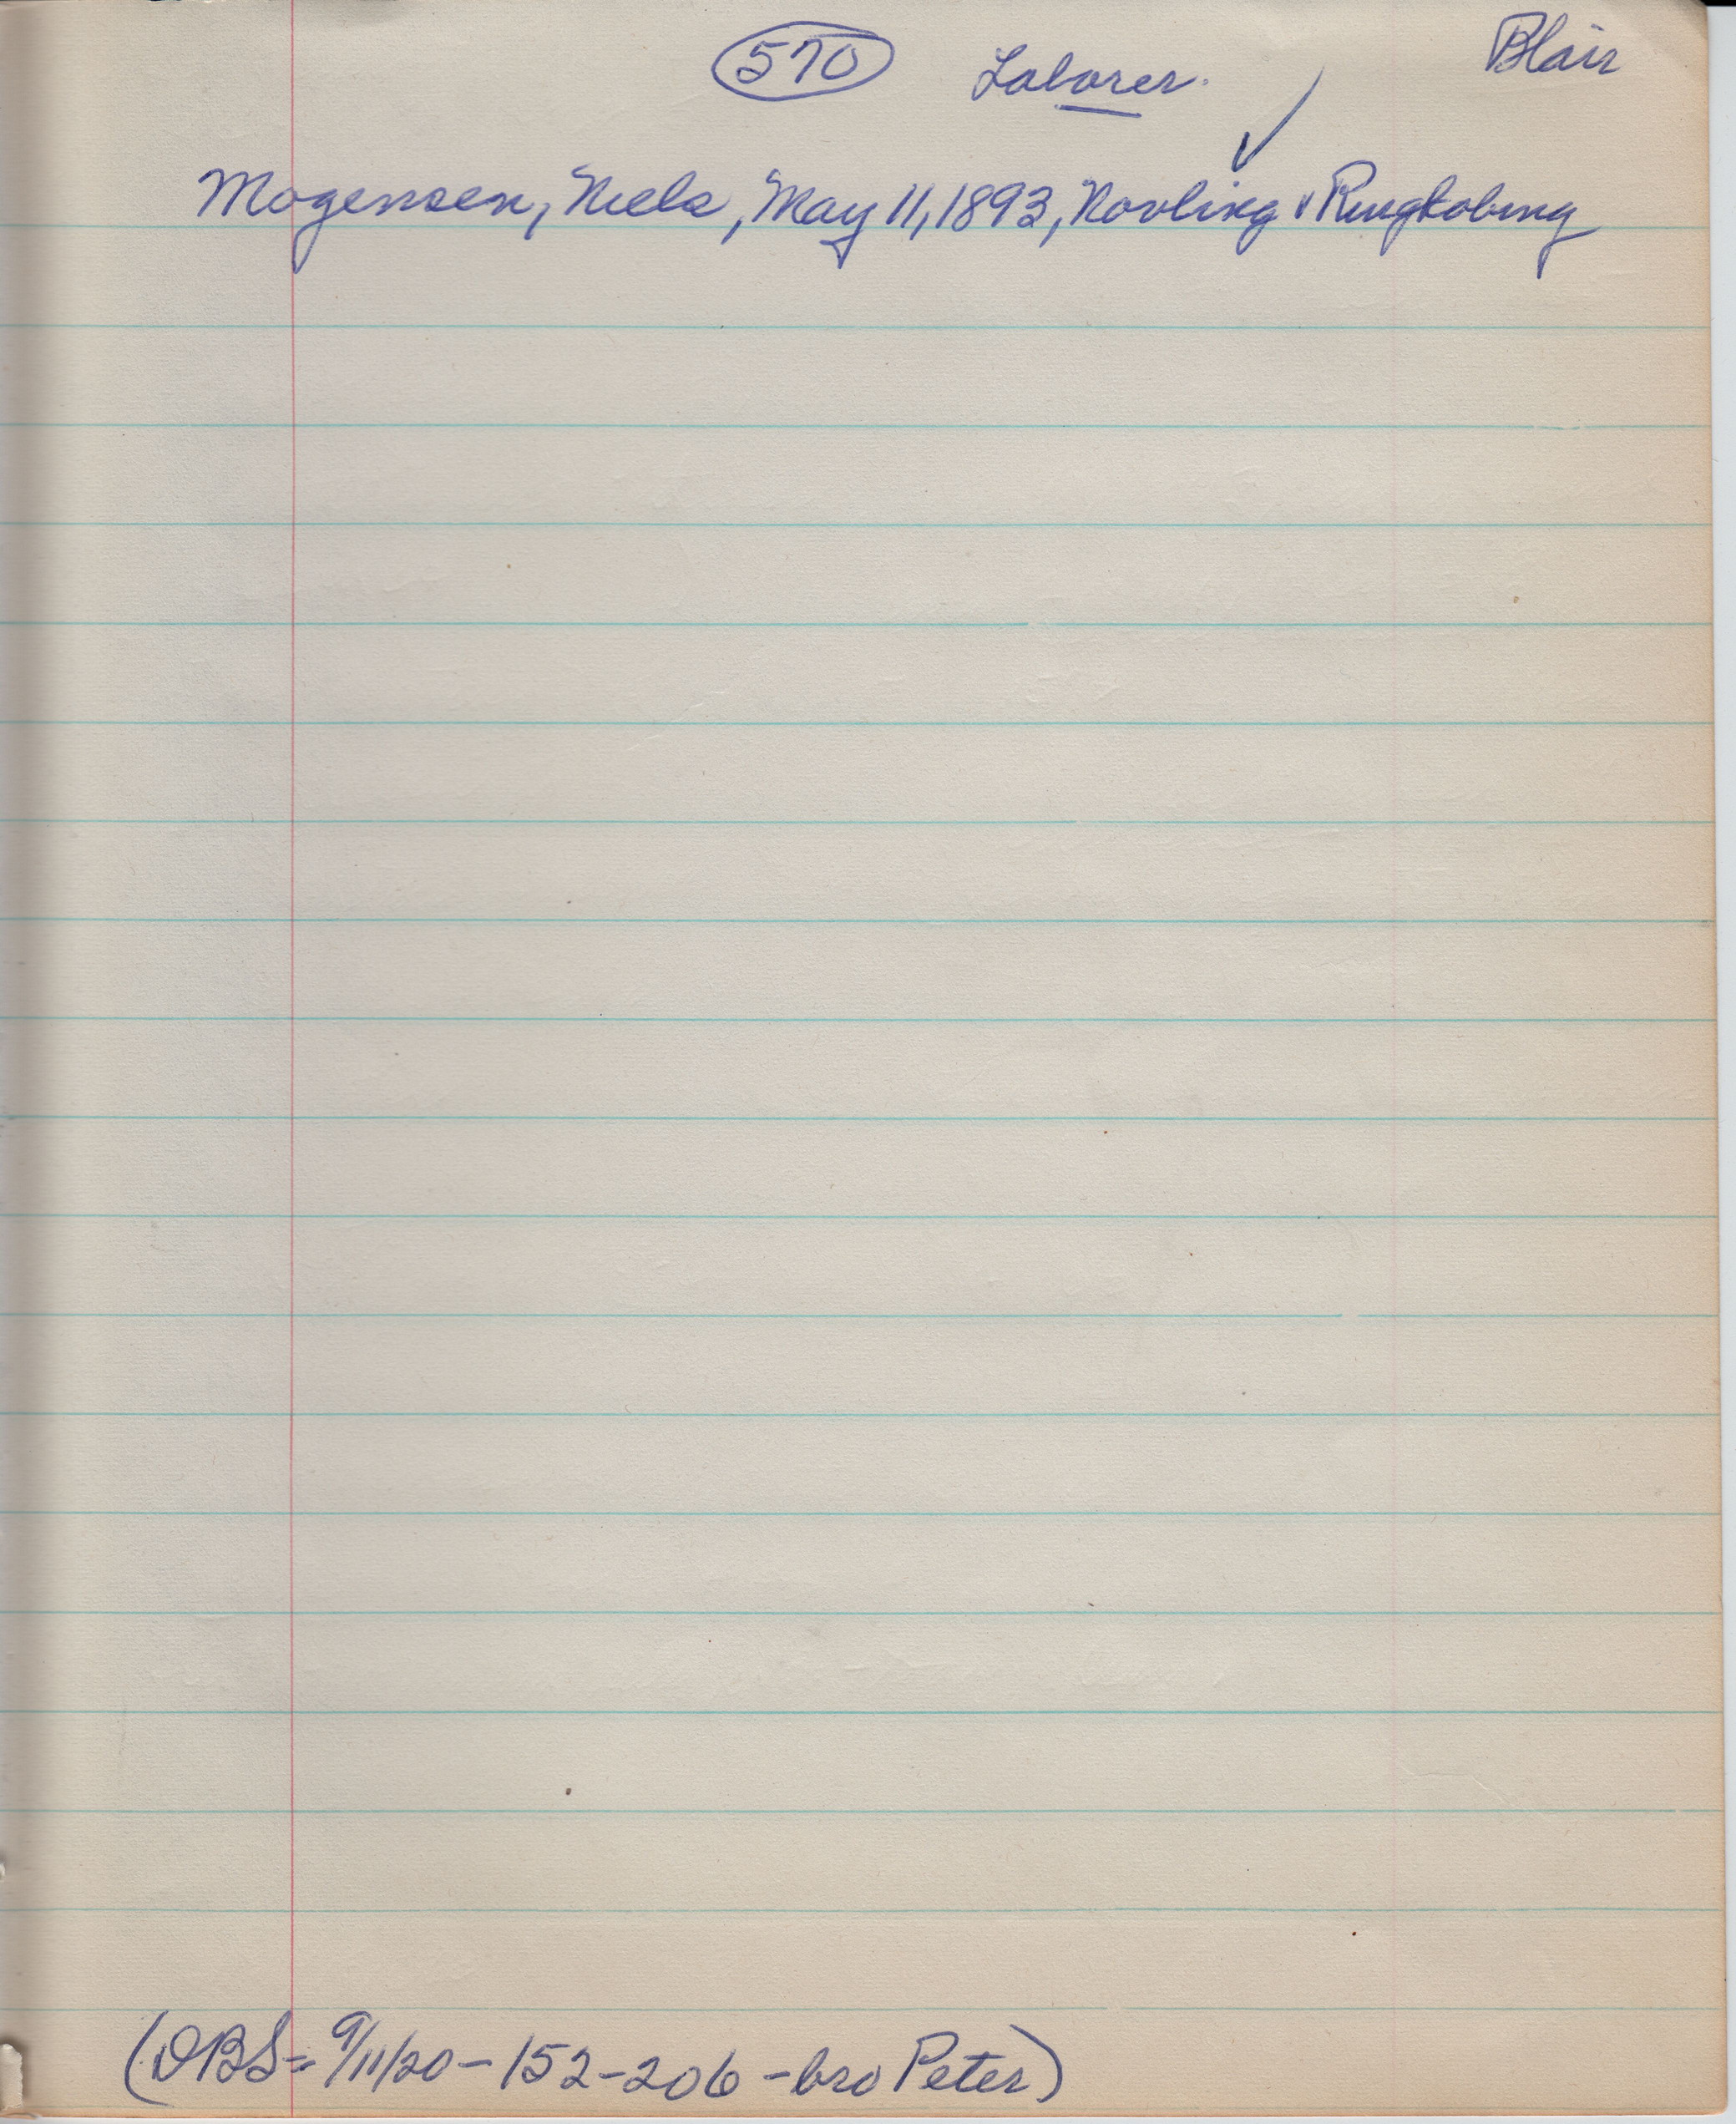 570 Laborer. Blair
Mogensen, Niels, May 11, 1893, Novling v Ringkobing
(DBS= 9/11/20-152-206-bro Peter)